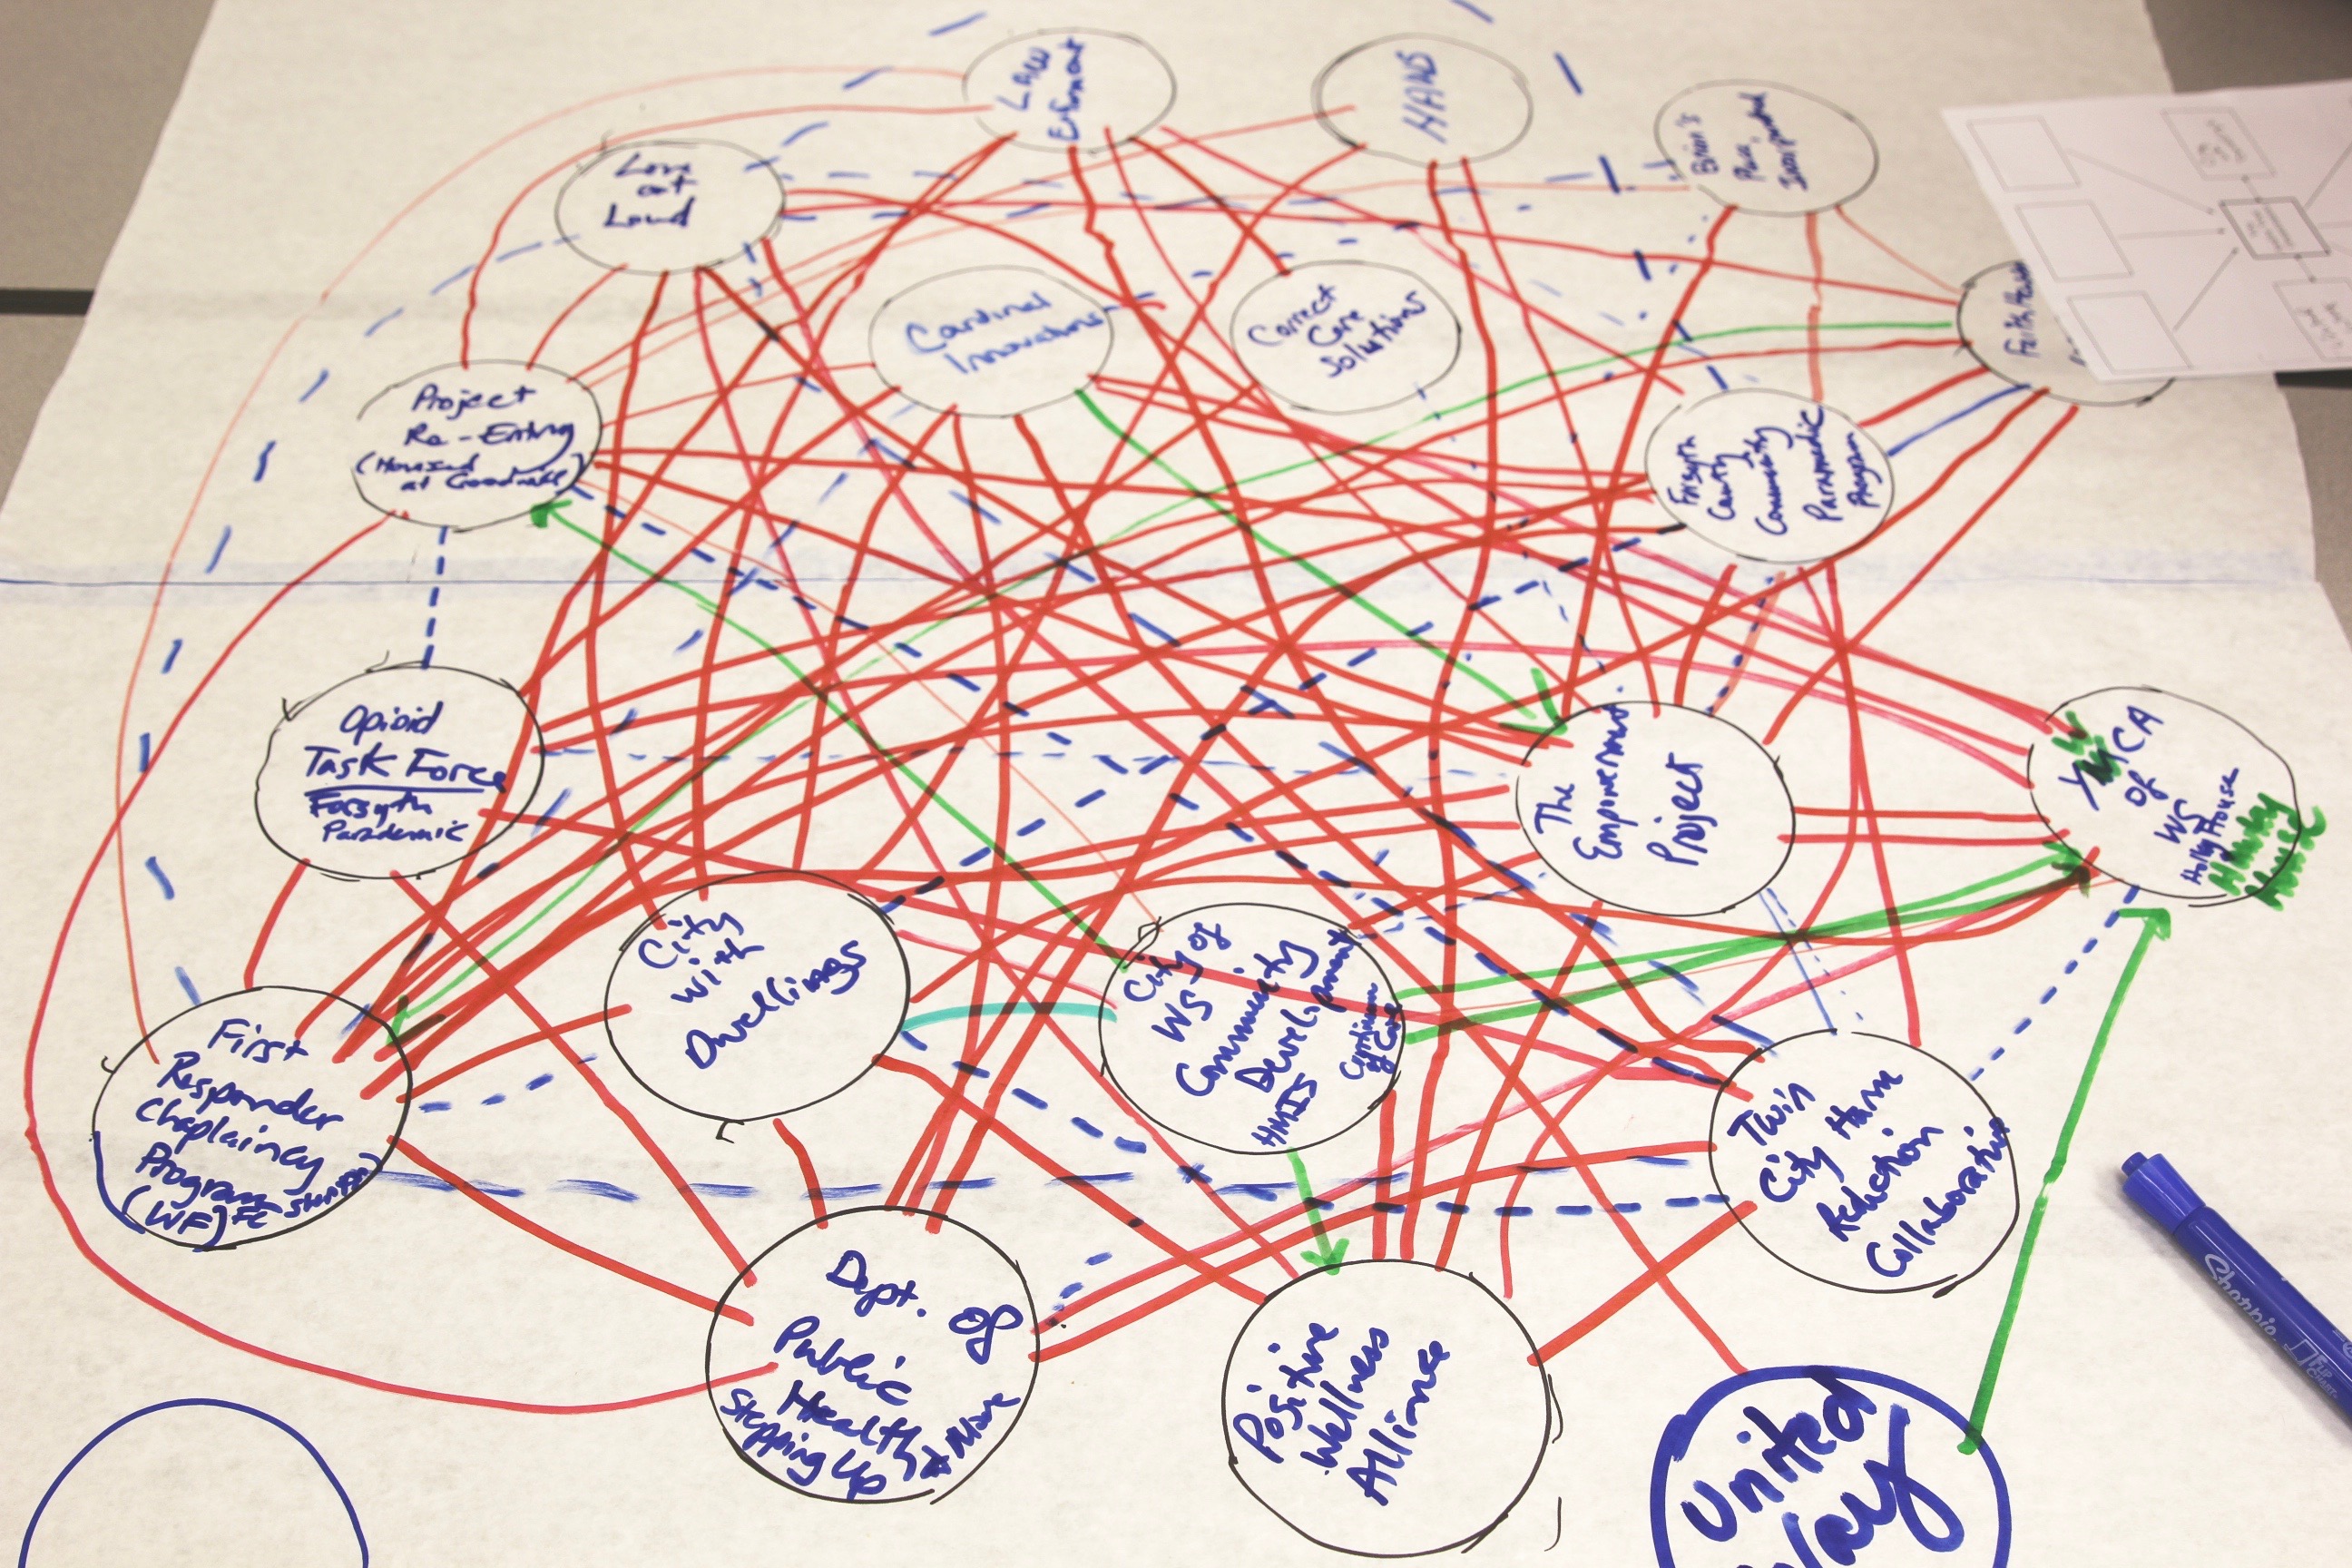 Law
HAWS
Love
out
Loud
Brian's
Cardinal
Innovations
Correct
Care
Solutions
Faith Health
Project
Re-Entry
(Housed
at Goodwill)
Forsyth
County
Community
Paramedic
Program
Opioid
Task Force
Forsyth
Paramedic
The
Empowerment
Project
of
WS
Hawley
House
City
with
Dwellings
City of
WS
Community
Development
Continuum
of Care
HMIS
First
Responder
Chaplaincy
Program
(WF)
Twin
City Harm
Reduction
Collaborative
Dept. of
Public
Health
Stepping Up
+ More
Positive
Wellness
Alliance
United
Way
Sharpie
FLIP
CHART